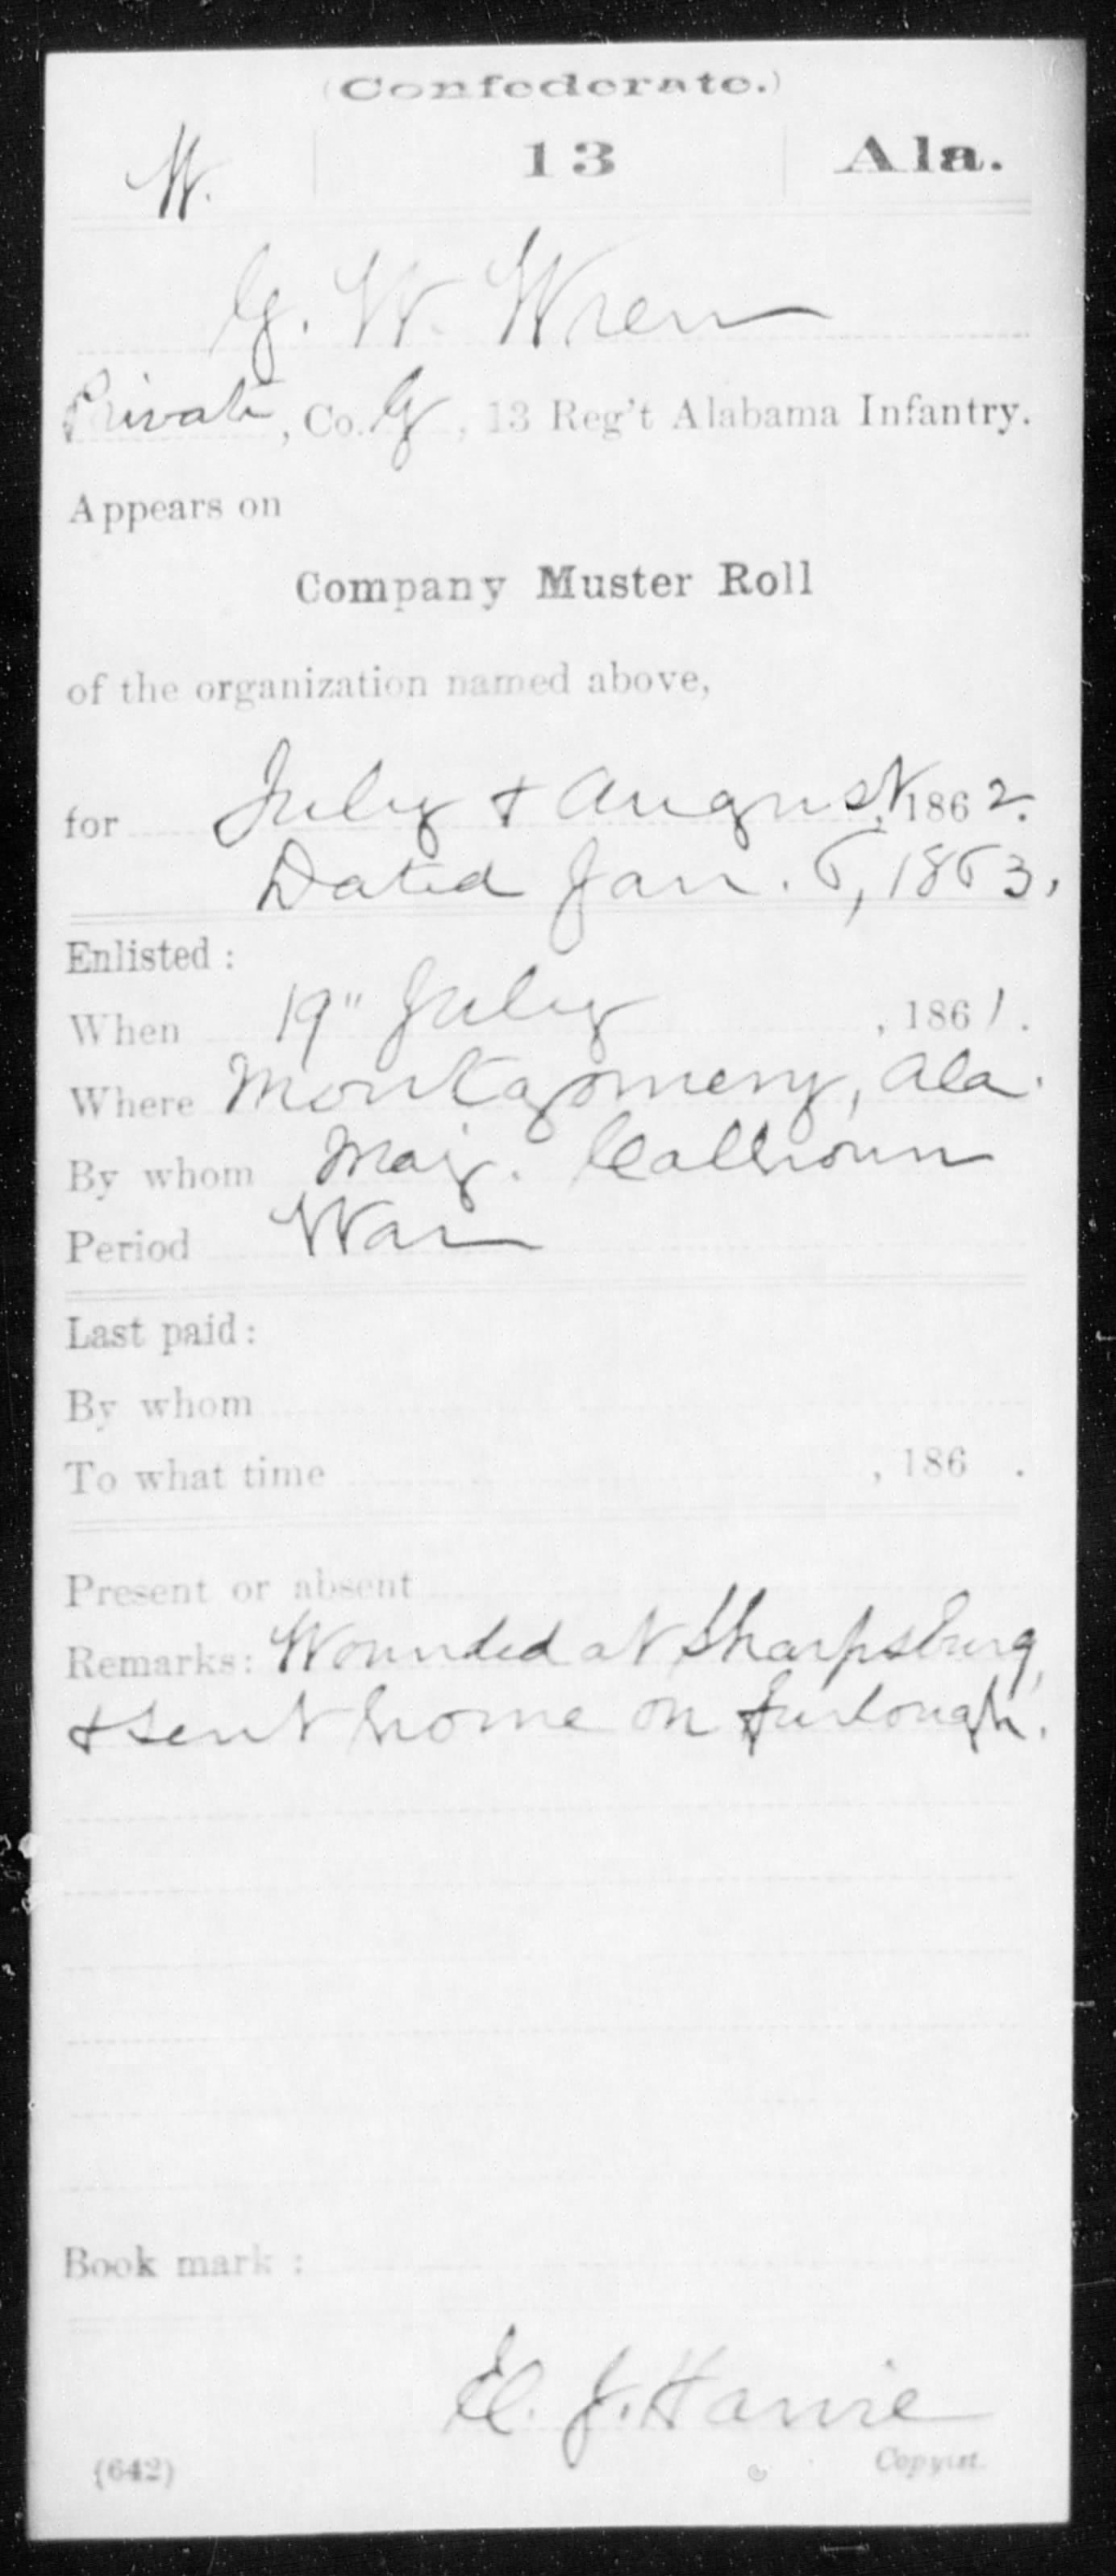 (Confederate.)
W. 13 Ala.
G. W. Wren
Private, Co. G, 13 Reg't Alabama Infantry.
Appears on
Company Muster Roll
of the organization named above,
for July & August, 1862.
Dated Jan. 6, 1863.
Enlisted:
When 19" July, 1861.
Where Montgomery, Ala.
By whom Maj. Calhoun
Period War
Last paid:
By whom
To what time , 186 .
Present or absent
Remarks: Wounded at Sharpsburg,
& sent home on furlough.
Book mark:
E. J. Harvie
(642) Copyist.